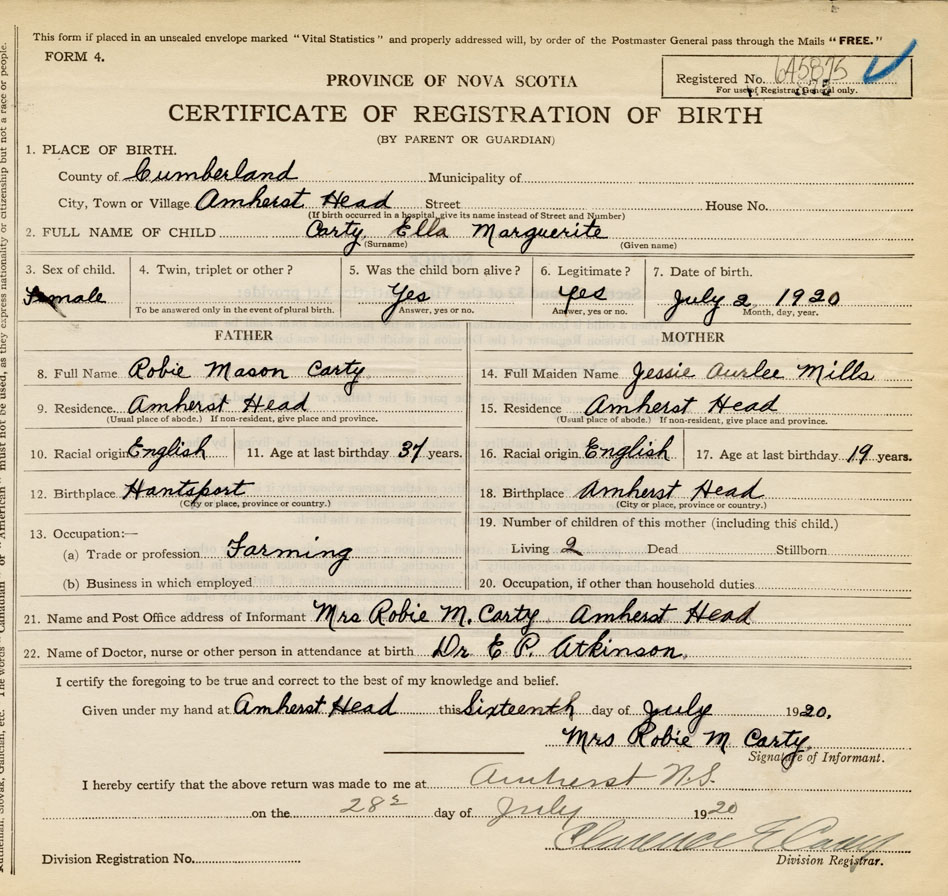 This form if placed in an unsealed envelope marked "Vital Statistics" and properly addressed will, by order of the Postmaster General pass through the Mails "FREE."
FORM 4.
Registered No.
For use of Registrar General only.
PROVINCE OF NOVA SCOTIA
CERTIFICATE OF REGISTRATION OF BIRTH
(BY PARENT OR GUARDIAN)
1. PLACE OF BIRTH.
County of Cumberland Municipality of
City, Town or Village Amherst Head Street House No.
(If birth occurred in a hospital, give its name instead of Street and Number)
2. FULL NAME OF CHILD Carty Ella Marguerite
(Surname) (Given name)
3. Sex of child. 4. Twin, triplet or other? 5. Was the child born alive? 6. Legitimate? 7. Date of birth.
Female Yes yes July 2 1920
To be answered only in the event of plural birth. Answer, yes or no. Answer, yes or no. Month, day, year.
FATHER MOTHER
8. Full Name Robie Mason Carty 14. Full Maiden Name Jessie Aurlee Mills
9. Residence Amherst Head 15. Residence Amherst Head
(Usual place of abode.) If non-resident, give place and province. (Usual place of abode.) If non-resident, give place and province.
10. Racial origin English 11. Age at last birthday 37 years. 16. Racial origin English 17. Age at last birthday 19 years.
12. Birthplace Hantsport 18. Birthplace Amherst Head
(City or place, province or country.) (City or place, province or country.)
13. Occupation:— 19. Number of children of this mother (including this child.)
(a) Trade or profession Farming Living 2 Dead Stillborn
(b) Business in which employed 20. Occupation, if other than household duties
21. Name and Post Office address of Informant Mrs Robie M. Carty Amherst Head
22. Name of Doctor, nurse or other person in attendance at birth Dr E. P. Atkinson.
I certify the foregoing to be true and correct to the best of my knowledge and belief.
Given under my hand at Amherst Head this Sixteenth day of July 1920.
Mrs Robie M Carty
Signature of Informant.
I hereby certify that the above return was made to me at Amherst N.S.
on the 28 day of July 1920
Clarence E
Division Registration No. Division Registrar.
must not be used, as they express nationality or citizenship but not a race or people.
The words "Canadian" or "American"
Ruthenian, Slovak, Galician, etc.